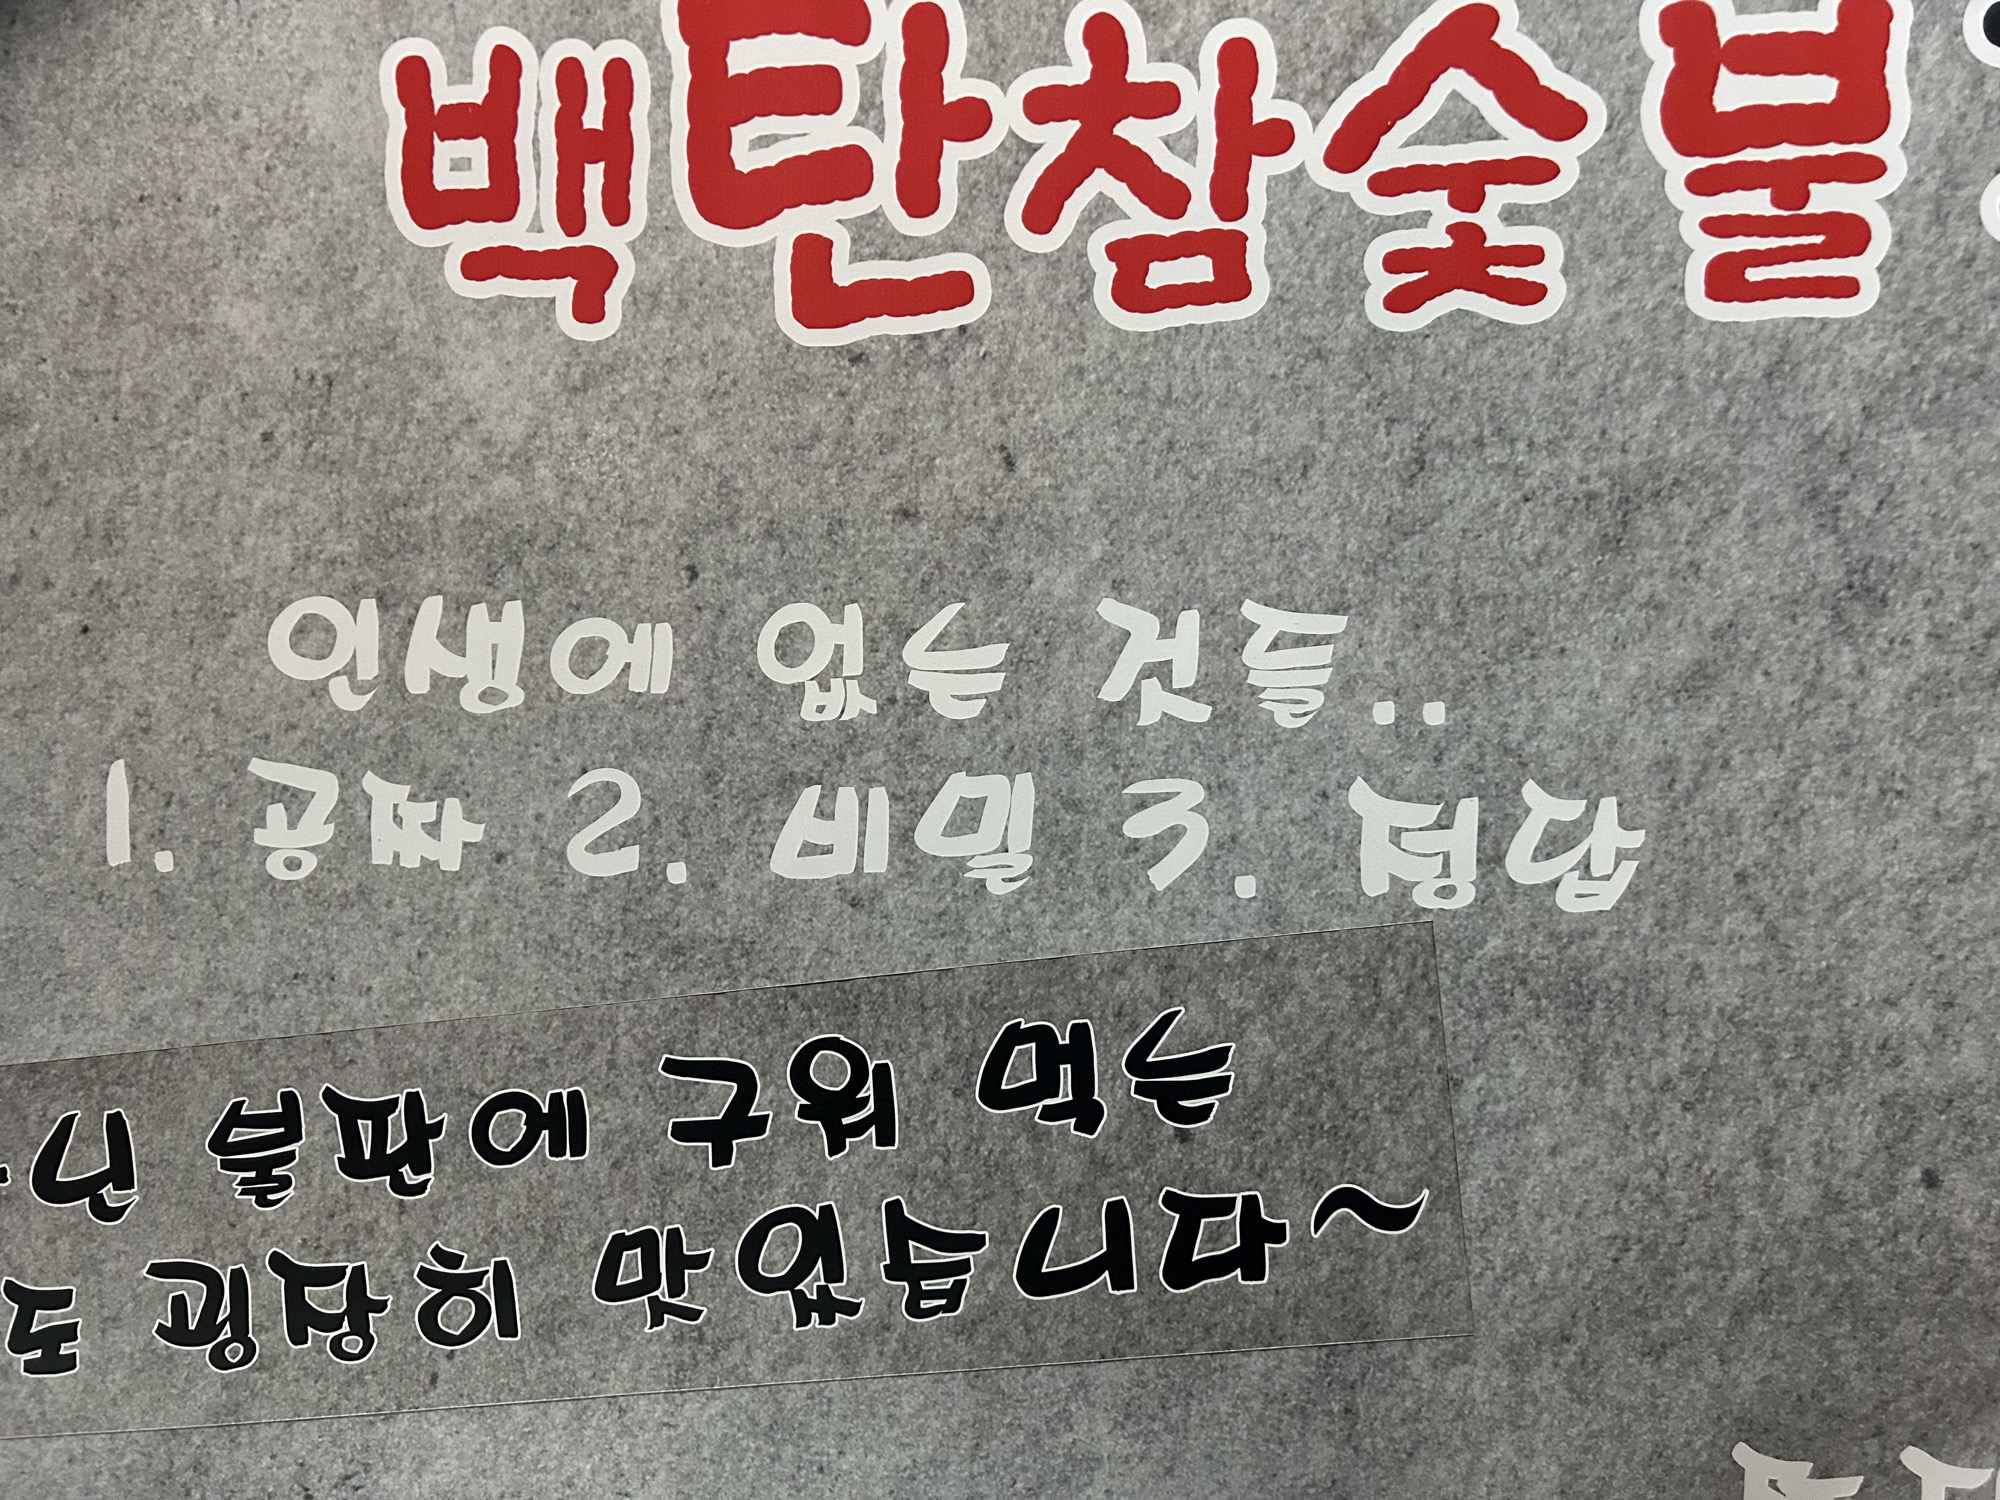 백탄참숯불
인생에 없는 것들..
1. 공짜 2. 비밀 3. 정답
불판에 구워 먹는
도 굉장히 맛있습니다~